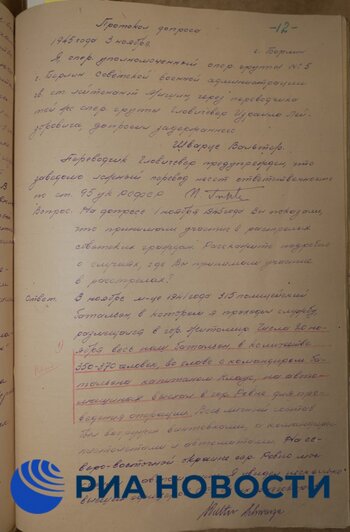 -12-
Протокол допроса
1945 года 3 ноября г. Берлин
Я, опер. уполномоченный опер группы № 5
г. Берлин Советской военной администрации
ст. лейтенант через переводчика
той же опер группы Гловичевер Израиля Лей-
зеровича, допросил задержанного
Шварце Вальтер.
Переводчик Гловичевер предупрежден, что
заведомо ложный перевод несет ответственность
по ст. 95 УК РСФСР
Вопрос. На допросе 1 ноября Вы показали,
что принимали участие в расстрелах
советских граждан. Расскажите подробно
о случаях, где Вы принимали участие
в расстрелах?
Ответ. В ноябре м-це 1941 года 315 полицейский
батальон, в котором я проходил службу,
размещался в гор. Житомир. Числа 20 но-
ября весь наш батальон, в количестве
350-370 человек, во главе с командиром ба-
тальона капитаном на авто-
машинах выехал в гор. Ровно для про-
ведения операции. Весь личный состав
был вооружен винтовками, а командиры
пистолетами и автоматами. На се-
веро-восточной окраине гор. Ровно мы
я увидел несколько
РИА НОВОСТИ
Walter Schwarze